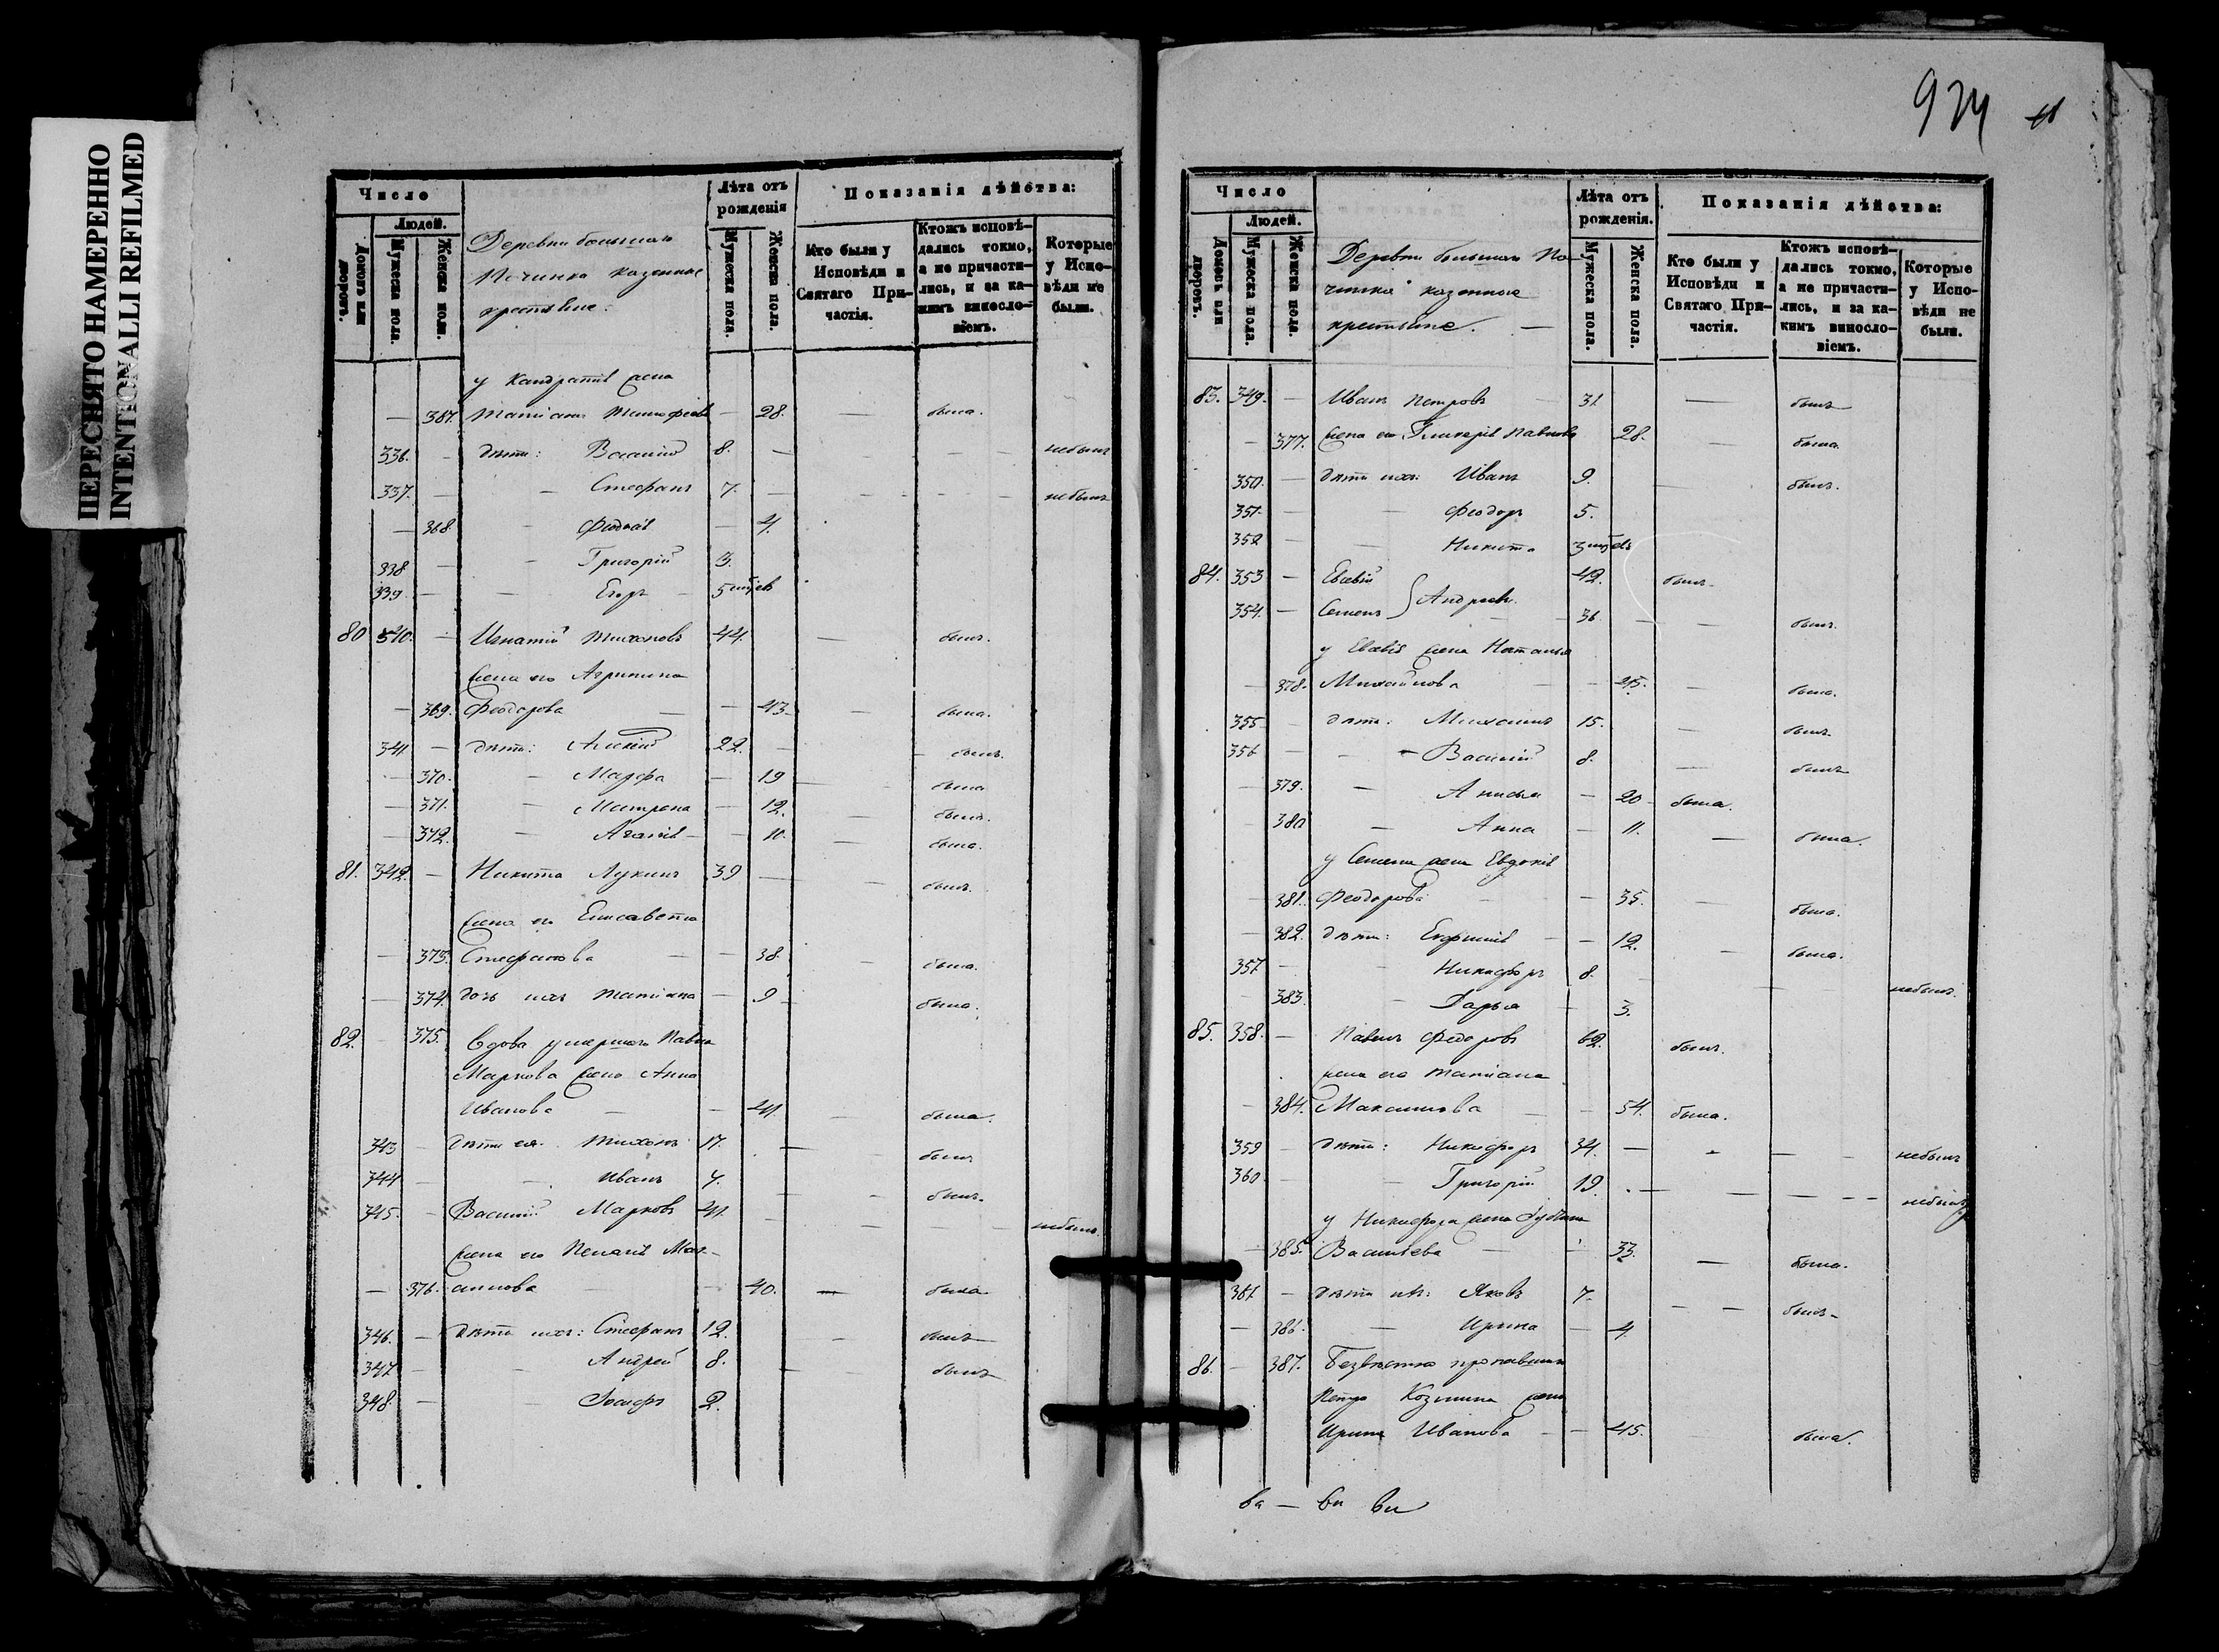 ПЕРЕСНЯТО НАМЕРЕННО
INTENTIONALLI REFILMED
Число
Людей.
Домовъ или дворовъ.
Мужеска пола.
Женска пола.
Деревни большаго
Починка казенные
крестьяне:
Лѣта отъ рожденія
Мужеска пола.
Женска пола.
Показанія дѣйства:
Кто были у Исповѣди и Святаго Причастія.
Ктожъ исповѣ-
дались токмо,
а не причасти-
лись, и за ка-
кимъ виносло-
віемъ.
Которые
у Испо-
вѣди не
были.
у Кандратія жена
— 367. Татіана Тимофеева — 28. — была.
336. — дѣти: Василій 8. — небылъ
337. — — Стефанъ 7. — небылъ
— 368. — — 4.
338 — — Григорій 3.
339. — — Егоръ 5 мѣ
80 340. — Игнатій Тихоновъ 44. — былъ.
жена его Агрипина
— 369. Феодорова — — 43. — была.
341 — дѣти: Алексій 22. — былъ.
— 370. — Марфа — 19 — была
— 371. — Матрона — 12. — была.
— 372. — Агафія — — 10. — была.
81. 342. — Никита Лукинъ 39 — — былъ.
жена его Елисавета
— 373. Стефанова — — 38. — была.
— 374. дочь ихъ Татіана — 9 — была.
82. — 375. Вдова умершаго Павла
Маркова жена Анна
Иванова — — 41. — была.
343 — дѣти ея: Тихонъ 17. — былъ
344 — — Иванъ 7. — — былъ.
345. — Василій Марковъ 41. — — — небылъ.
жена его Пелагія Мак-
— 376. симова — 40. — была.
346. — дѣти ихъ: Стефанъ 12. — былъ
347 — — Андрей 8. — былъ
348. — — Іосифъ 2.
974
Число
Людей.
Домовъ или дворовъ.
Мужеска пола.
Женска пола.
Деревни большаго По-
чинка казенные
крестьяне. —
Лѣта отъ рожденія.
Мужеска пола.
Женска пола.
Показанія дѣйства:
Кто были у
Исповѣди и
Святаго При-
частія.
Ктожъ исповѣ-
дались токмо,
а не причасти-
лись, и за ка-
кимъ виносло-
віемъ.
Которые
у Испо-
вѣди не
были.
83. 349. — Иванъ Петровъ 31 — былъ
— 377. жена его Гликерія Павлова 28. — была.
350. — дѣти ихъ: Иванъ 9. — былъ.
351. — — Феодоръ 5.
352 — — Никита 3 мѣ
84. 353 — Евсевій 42. былъ.
354. — Семенъ } Андреевы. 36 — — былъ.
у Евсевія жена Наталья
— 378. Михайлова — 45. — была.
355 — дѣти: Михаилъ 15. — былъ.
356 — — Василій 8. — былъ
— 379. — Анисья — 20 была.
— 380 — Анна — 11. — была.
у Семена жена Евдокія
— 381. Феодорова — 35. — была.
— 382. дѣти: — 12. — была.
357 — — Никифоръ 8. — — небылъ.
— 383. — Дарья — 3.
85. 358. — Павелъ Федоровъ 62. былъ.
жена его Татіана
— 384. Максимова — — 54. была.
359 — дѣти: Никифоръ 34. — — — небылъ
360 — — Григорій 19. — — — небылъ
у Никифора жена
— 385. Васильева — — 33. — была.
361 — дѣти ихъ: Яковъ 7. — — былъ
— 386. — Ирина — 4.
86. — 387. Безвѣстно пропавшаго
Петра Козмина жена
Ирина Иванова — — 45. была.